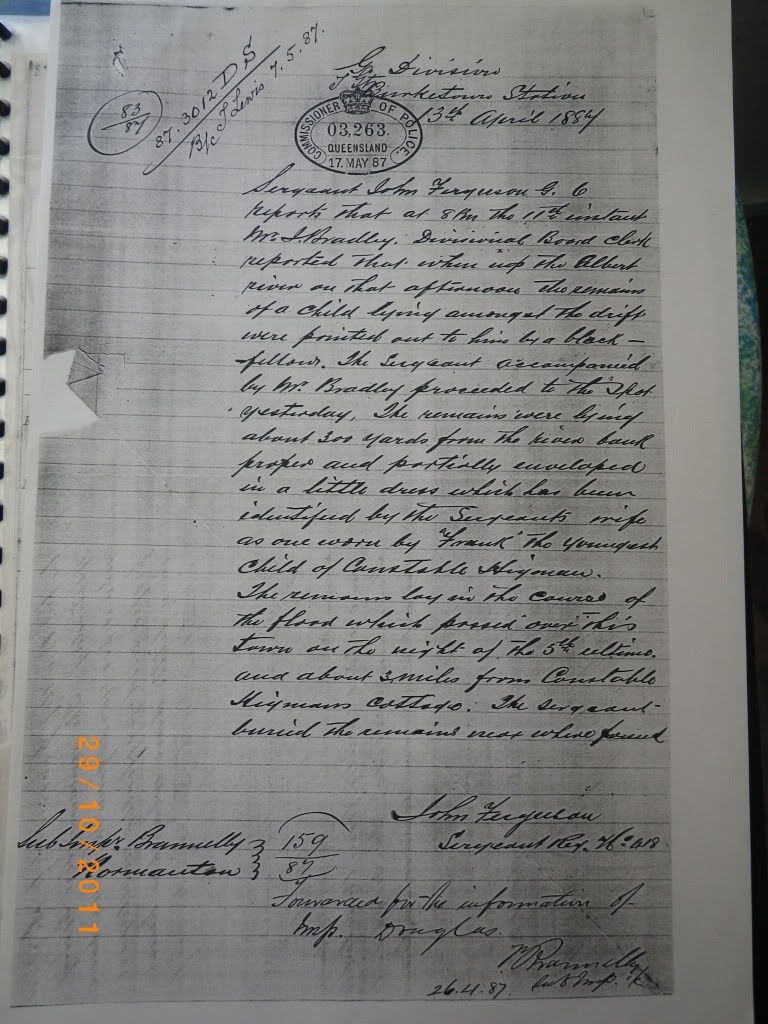 83
87
87. 3012 D S
B/c J Lewis 7.5.87.
G. Division
Burketown Station
13th April 1887
COMMISSIONER OF POLICE
03,263.
QUEENSLAND
17. MAY 87
Sergeant John Ferguson G. 6
reports that at 8 PM the 11th instant
Mr J. Bradley. Divisional Board clerk
reported that when up the Albert
river on that afternoon the remains
of a child lying amongst the drift
were pointed out to him by a black-
fellow. The Sergeant accompanied
by Mr Bradley proceeded to the Spot
yesterday, The remains were lying
about 300 yards from the river bank
proper and partially enveloped
in a little dress which has been
identified by the Sergeants wife
as one worn by "Frank" the youngest
child of Constable Higman.
The remains lay in the course of
the flood which passed over this
town on the night of the 5th ultimo.
and about 3 miles from Constable
Higmans cottage. The Sergeant
buried the remains near where found
John Ferguson
Sergeant Reg. No 418
Sub Inspr Brannelly
Normanton
159
87
Forwarded for the information of
Insp. Douglas.
Brannelly
26.4.87. Sub Insp.
29/10/2011